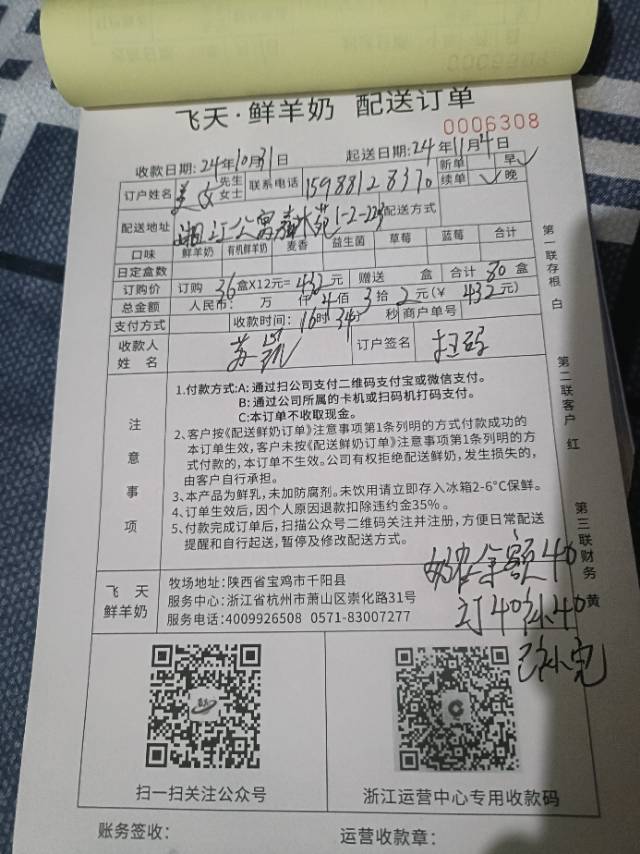 飞天·鲜羊奶 配送订单
0006308
收款日期:24年10月31日 起送日期:24年11月4日
订户姓名 女 先生 女士 联系电话 15988128370 新单 续单 ✓ 早 ✓ 晚
配送地址 湘江公寓 苑1-2-223 配送方式
口味 鲜羊奶 有机鲜羊奶 麦香 益生菌 草莓 蓝莓 合计
日定盒数
订购价 订购36盒X12元=432元 赠送 盒 合计80盒
总金额 人民币: 万 仟 4佰 3拾 2元(¥ 432元)
支付方式 收款时间:16时34分 秒 商户单号
收款人姓名 苏 151 订户签名 扫码
注意事项
1.付款方式:A: 通过扫公司支付二维码支付宝或微信支付。
B: 通过公司所属的卡机或扫码机打码支付。
C:本订单不收取现金。
2、客户按《配送鲜奶订单》注意事项第1条列明的方式付款成功的
本订单生效,客户未按《配送鲜奶订单》注意事项第1条列明的方
式付款的,本订单不生效。公司有权拒绝配送鲜奶,发生损失的,
由客户自行承担。
3、本产品为鲜乳,未加防腐剂。未饮用请立即存入冰箱2-6°C保鲜。
4、订单生效后,因个人原因退款扣除违约金35%。
5、付款完成订单后,扫描公众号二维码关注并注册,方便日常配送
提醒和自行起送,暂停及修改配送方式。
第一联存根 白
第二联客户 红
第三联财务 黄
奶卡余额40
订40补40
已补完
飞天
鲜羊奶
牧场地址:陕西省宝鸡市千阳县
服务中心:浙江省杭州市萧山区崇化路31号
服务电话:4009926508 0571-83007277
扫一扫关注公众号
浙江运营中心专用收款码
账务签收:
运营收款章: